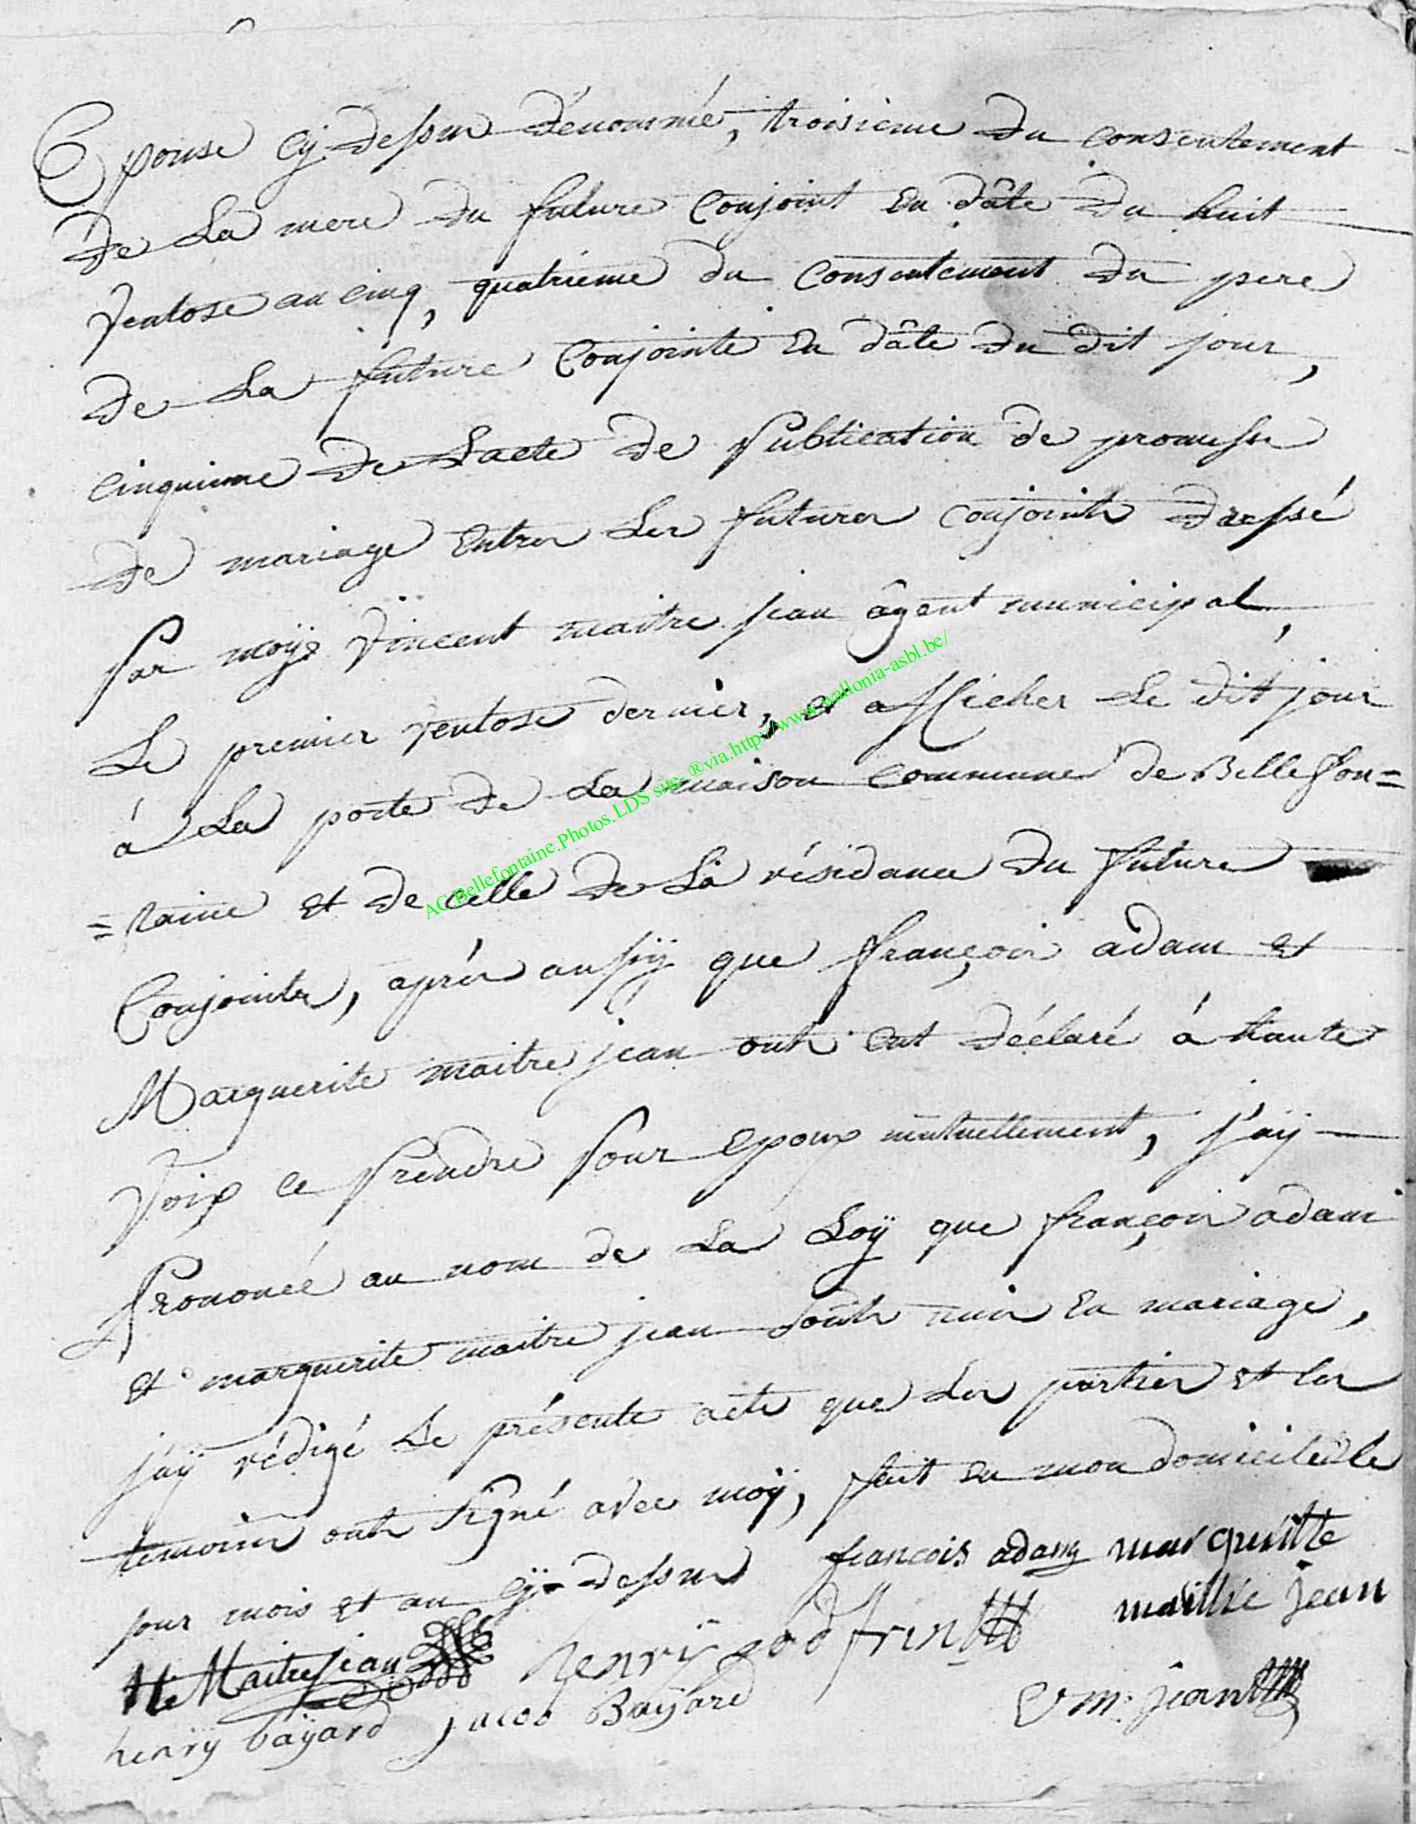 Epouse cy dessus dénommé, troisieme du consentement
de La mere du future Conjoint en dâte du huit
Ventose an cinq, quatrieme du Consentement du pere
de La future Conjointe en dâte du dit jour,
cinquieme de Lacte de Publication de promesse
de mariage Entres Les futures conjoints dressé
Par moÿ Vincent maitre jean âgent municipal,
Le premier Ventose dernier, et afficher Le dit jour
á La porte de La maison commune de Bellefon=
=taine et de celle de La résidance du future
Conjointe, aprés aussÿ que françois adam et
Marguerite maitre jean onts eut déclaré á haute
Voix ce Prendre Pour epoux mutuellement, j'aÿ
Prononcé au nom de La Loÿ que françois adam
et marguerite maitre jean sonts unis en mariage,
j'aÿ rédigé Le présente acte que Les parties et les
temoins onts signé avec moÿ, fait en mon domicile le
jour mois et an cÿ-dessus françois adam margueritte
maittre jean
H Maitrejean henrÿ godfrin
henrÿ baÿard jacob Baÿard V m: jean
AC.Bellefontaine.Photos.LDS site ®via.http://www.wallonia-asbl.be/